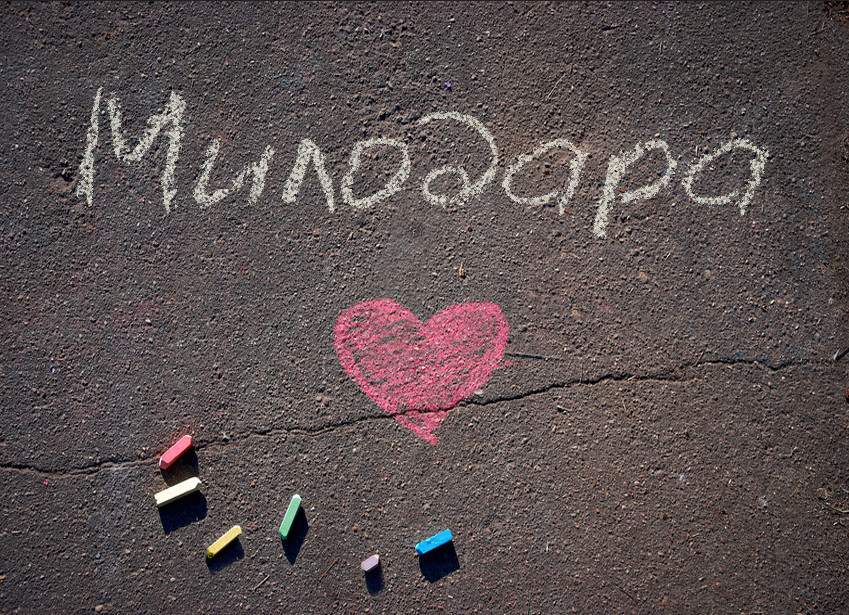 Милодара